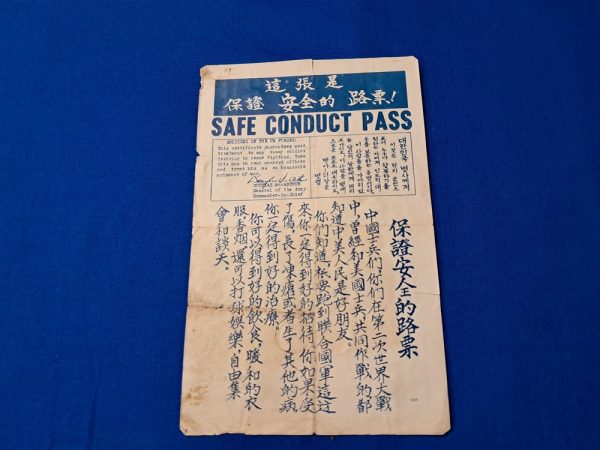 這張是
保證安全的路票!
SAFE CONDUCT PASS
SOLDIERS OF THE UN FORCES:
This certificate guarantees good
treatment to any enemy soldier
desiring to cease fighting. Take
this man to your nearest officer
and treat him as an honorable
prisoner of war.
DOUGLAS MacARTHUR
General of the Army
Commander-in-Chief
대한민국 병사에게
保證安全的路票
中國士兵們,你們在第二次世界大戰
中,曾經和美國士兵,共同作戰的,都
知道中美人民是好朋友。
你們知道,祇要跑到聯合國軍這边
來,你一定得到好的招待,你如果受
了傷,長了凍瘡或者生了其他的病,
你一定得到好的治療。
你可以得到好的飲食,暖和的衣
服香烟,還可以打球娛樂,自由集
會和談天。